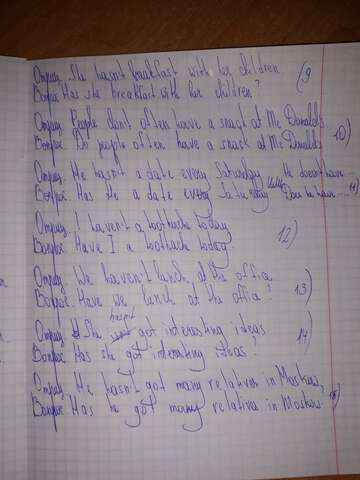 Отриц. She hasn't breakfast with her children (9
Вопрос. Has she breakfast with her children?
Отриц. People don't often have a snack at Mc Donalds
Вопрос. Do people often have a snack at Mc Donalds 10)
Отриц. He hasn't a date every Saturday He doesn't have...
Вопрос. Has He a date every Saturday Does he have... 11)
Отриц. I haven't a toothache today
Вопрос. Have I a toothache today 12)
Отриц. We haven't lunch at the office
Вопрос. Have we lunch at the office? 13)
Отриц. She hasn't got interesting ideas
Вопрос. Has she got interesting ideas? 14)
Отриц. He hasn't got many relatives in Moskow
Вопрос. Has he got many relatives in Moskow 15)